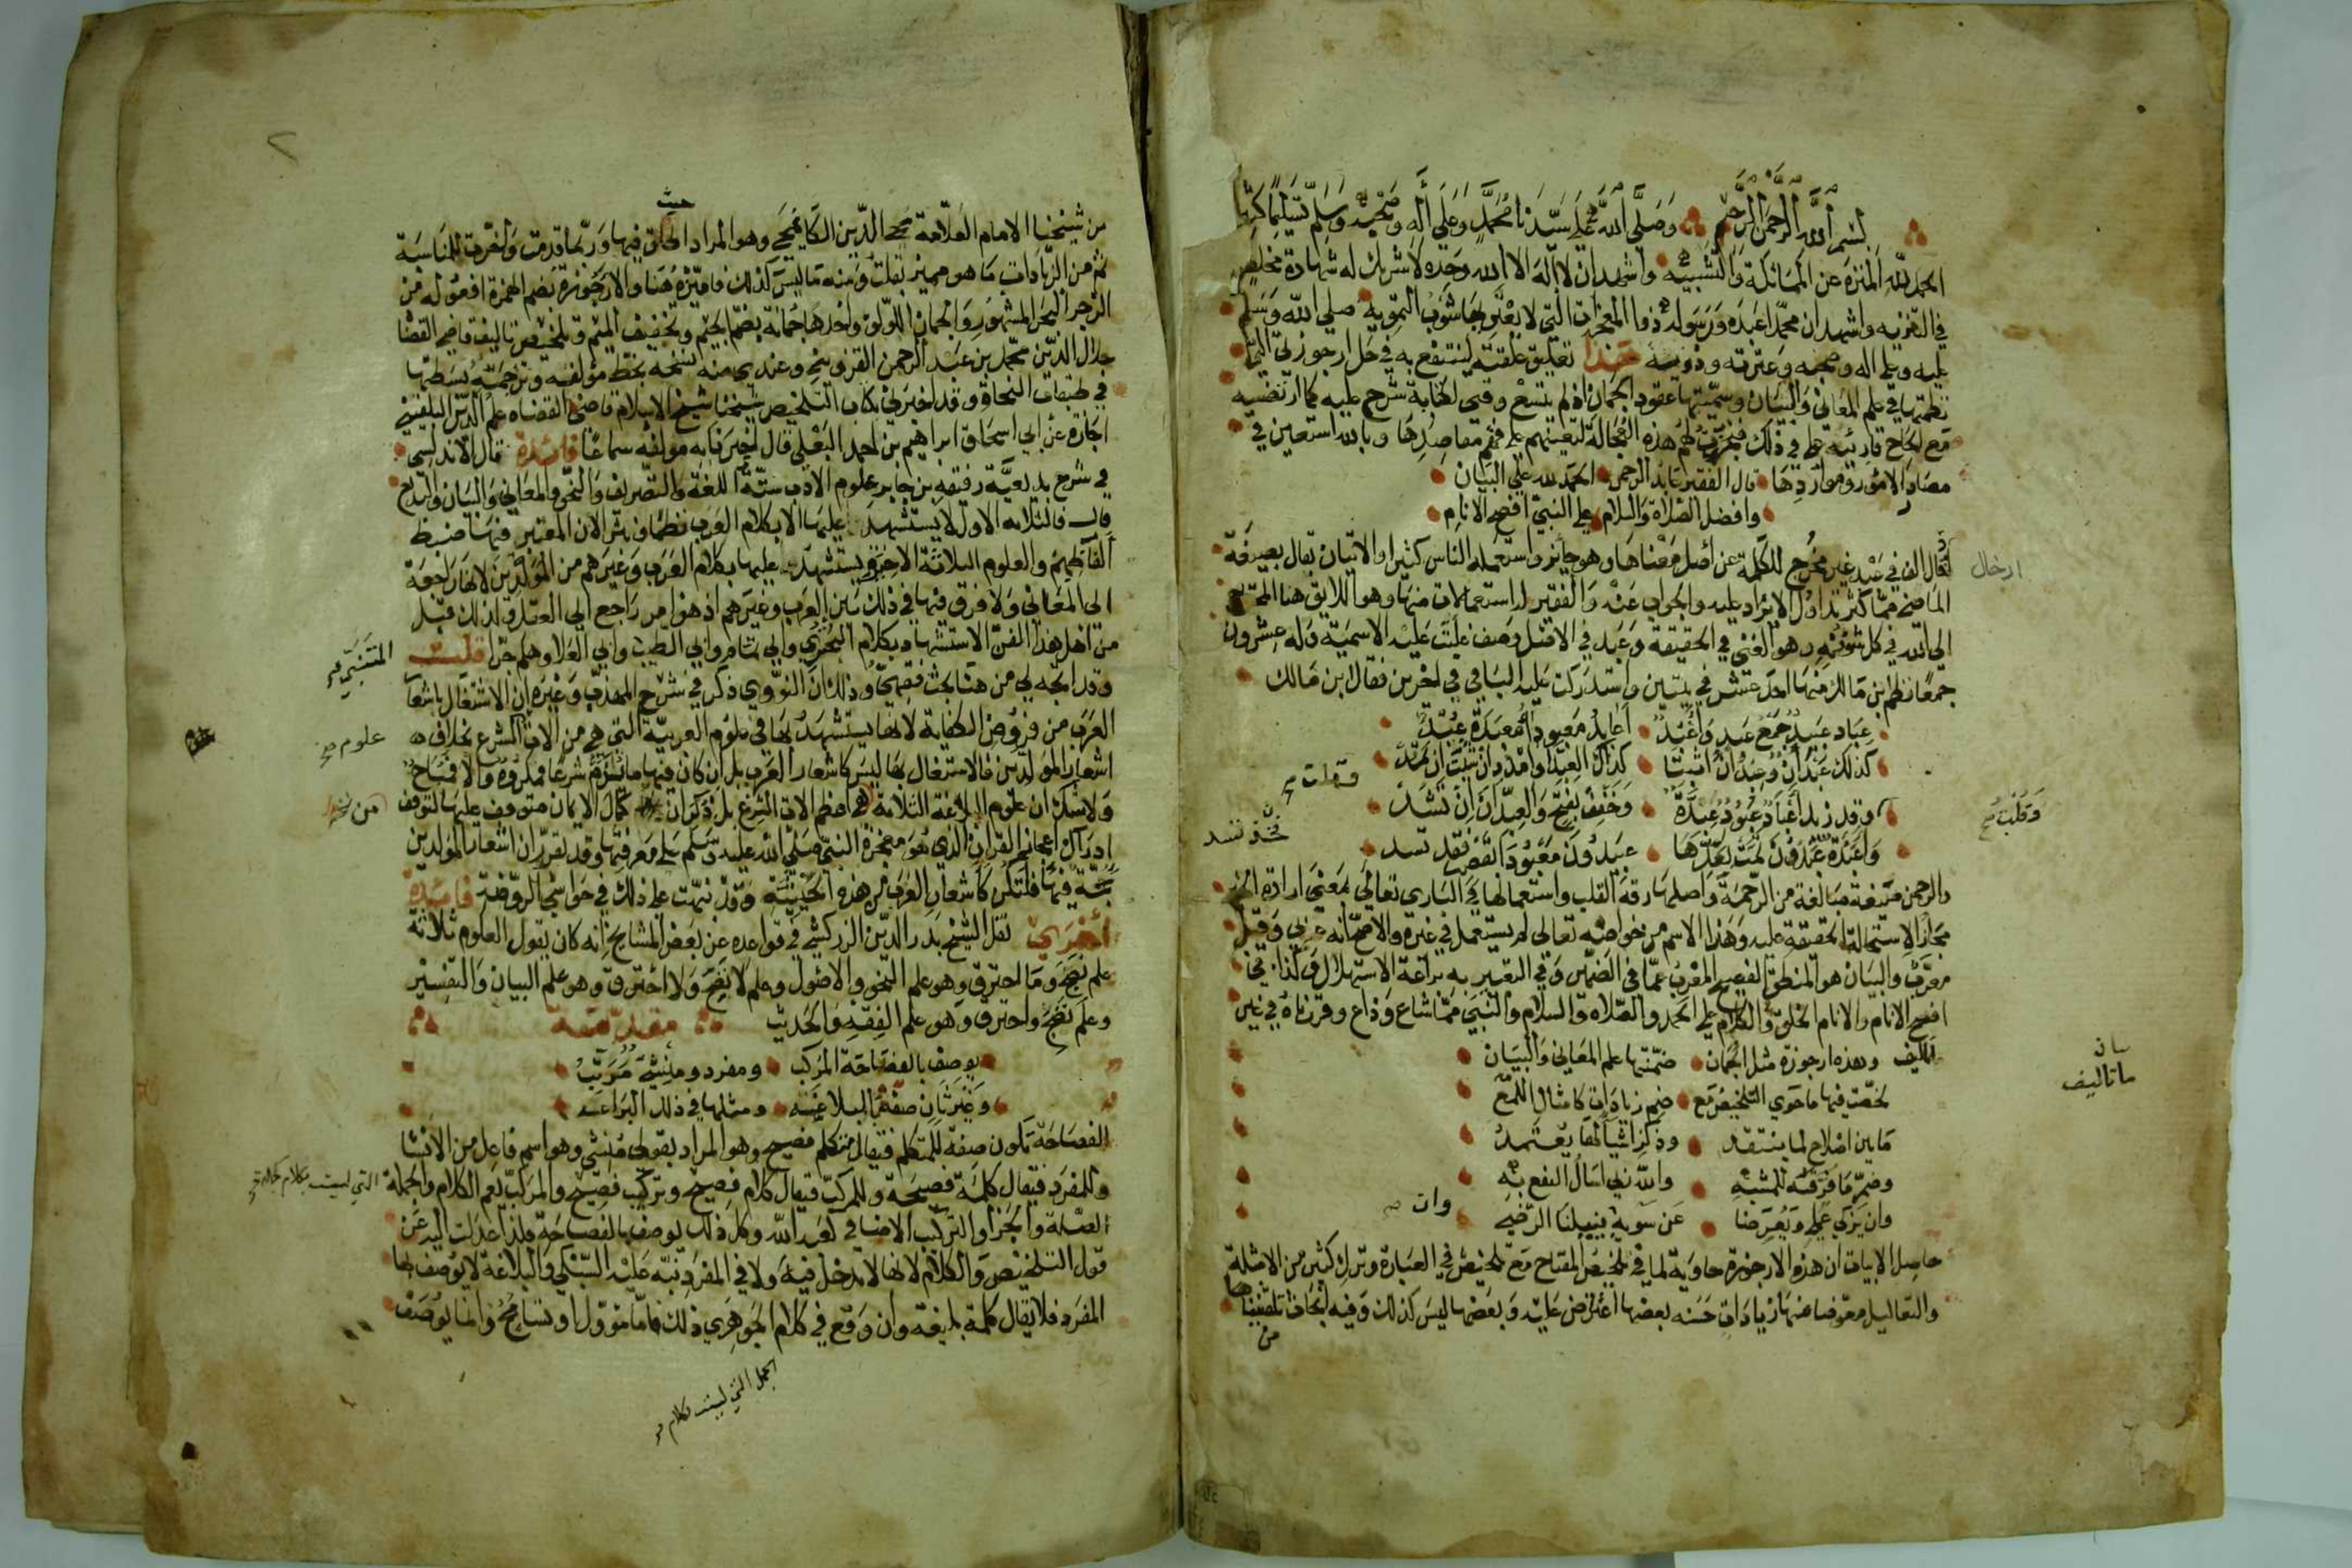 بسم الله الرحمن الرحيم وصلى الله على سيدنا محمد وعلى آله وصحبه وسلم تسليما كثيرا
الحمد لله المنزه عن المماثلة والتشبيه واشهد ان لا اله الا الله وحده لا شريك له شهادة مخلص
في التنزيه واشهد ان محمدا عبده ورسوله ذو المعجزات التي لا يعتريها شوب التمويه صلى الله وسلم
عليه وعلى اله وصحبه وعترته وذويه هذا تعليق علقته لينتفع به في حل ارجوزتي التي
نظمتها في علم المعاني والبيان وسميتها عقود الجمان اذ لم يتسع وقتي لكتابة شرح عليه كما ارتضيه
مع الحاح قارئيه علي في ذلك فنجزت لهم هذه العجالة لتعينهم على فهم مقاصدها وبالله استعين في
مصادر الامور ومواردها قال الفقير عابد الرحمن الحمد لله على البيان
وافضل الصلاة والسلام على النبي افصح الانام
ادخال الف في عبد غير مخرج للكلمة عن اصل معناها وهو جايز واستعمله الناس كثيرا والاتيان بقال بصيغة
الماضي مما كثر تداول الايراد عليه والجواب عنه والفقير له استعمالات منها وهو اللايق هنا المحتاج
الى الله في كل شؤنه وهو الغني في الحقيقة وعبد في الاصل وصف غلبت عليه الاسمية وله عشرون
جمعا نظم ابن مالك منها احد عشر في بيتين واستدركت عليه الباقي في اخرين فقال ابن مالك
عباد عبيد جمع عبد واعبد اعابد معبوداء معبدة عبد
كذلك عبدان وعبدان اثبتا كذاك العبدا وامدد ان شئت ان تمد
وقلت
وقد زيد اعباد عبود عبدة وخفف بفتح والعبدان ان تشد
واعبدة عبدون ثمت بعدها عبيدون معبودا بقصر فخذ تسد
والرحمن صيغة مبالغة من الرحمة واصلها رقة القلب واستعمالها في الباري تعالى بمعنى ارادة الخير
مجاز لاستحالة الحقيقة عليه وهذا الاسم من خواصه تعالى لم يستعمل في غيره والاصح انه عربي وقيل
معرب والبيان هو المنطق الفصيح المعرب عما في الضمير وفي التعبير به براعة الاستهلال وكذا في
افصح الانام والانام الخلق والكلام على الحمد والصلاة والسلام والنبي مما شاع وذاع وقررناه في غير
ما تاليف وهذه ارجوزة مثل الجمان ضمنتها علم المعاني والبيان
لخصت فيها ما حوى التلخيص مع ضم زيادات كامثال اللمع
ما بين اصلاح لما ينتقد وذكر اشيا لها يعتمد
وضم ما فرقه للمشبه والله ربي اسال النفع به
وان يزكي عملي ويعرضا عن سوءه وان ينيلنا الرضى
حاصل الابيات ان هذه الارجوزة حاوية لما في تلخيص المفتاح مع تلخيص في العبارة وترك كثير من الامثلة
والتعاليل معوضا منها زيادات حسنة بعضها اعتراض عليه وبعضها ليس كذلك وفيه ابحاث تلقيناها
من
من شيخنا الامام العلامة محيي الدين الكافيجي وهو المراد حيث اطلق فيها وربما قدمت واخرت للمناسبة
ثم من الزيادات ما هو مميز بقلت ومنه ما ليس كذلك فاميزه هنا والارجوزة بضم الهمزة افعولة من
الرجز البحر المشهور والجمان اللؤلؤ واحدها جمانة بضم الجيم وتخفيف الميم والتلخيص تاليف قاضي القضاة
جلال الدين محمد بن عبد الرحمن القزويني وعندي منه نسخة بخط مؤلفه وترجمته بسطتها
في طبقات النحاة وقد اخبرني بكتاب التلخيص شيخنا شيخ الاسلام قاضي القضاه علم الدين البلقيني
اجازة عن ابي اسحاق ابراهيم بن احمد البعلي قال اخبرنا به مولفه سماعا فائدة قال الاندلسي
في شرح بديعية رفيقه بن جابر علوم الادب ستة اللغة والتصريف والنحو والمعاني والبيان والبديع
قال فالثلاثة الاول لا يستشهد عليها الا بكلام العرب نظما ونثرا لان المعتبر فيها ضبط
الفاظهم والعلوم الثلاثة الاخيرة يستشهد عليها بكلام العرب وغيرهم من المولدين لانها راجعة
الى المعاني ولا فرق فيها في ذلك بين العرب وغيرهم اذ هو امر راجع الى العقل ولذلك قبل
من اهل هذا الفن الاستشهاد بكلام البحتري وابي تمام وابي الطيب المتنبي وابي العلا وهلم جرا قلت
وقد اتجه لي من هنا بحث فقهي وذلك ان النووي ذكر في شرح المهذب وغيره ان الاشتغال باشعار
العرب من فروض الكفاية لانها يستشهد بها في علوم العربية التي هي من الات علوم الشرع بخلاف
اشعار المولدين فالاشتغال بها ليس كاشعار العرب بل ان كان فيها ما يذم شرعا فمكروه والا فمباح
ولا شك ان علوم البلاغة الثلاثة هي من اعظم الات الشرع بل ذكر ان كمال الايمان متوقف عليها لتوقف
ادراك اعجاز القران الذي هو معجزة النبي صلى الله عليه وسلم على معرفتها وقد تقرر ان اشعار المولدين
حجة فيها فلتكن كاشعار العرب من هذه الحيثية وقد نبهت على ذلك في حواشي الروضة فائدة
اخرى نقل الشيخ بدر الدين الزركشي في قواعده عن بعض المشايخ انه كان يقول العلوم ثلاثة
علم نضج وما احترق وهو علم النحو والاصول وعلم لا نضج ولا احترق وهو علم البيان والتفسير
وعلم نضج واحترق وهو علم الفقه والحديث مقدمة
يوصف بالفصاحة المركب ومفرد ومنشئ مرتب
وغير ثان صفه بالبلاغه ومثلها في ذلك البراعه
الفصاحة تكون صفة للمتكلم فيقال متكلم فصيح وهو المراد بقولي منشي وهو اسم فاعل من الانشا
وللمفرد فيقال كلمة فصيحة وللمركب فيقال كلام فصيح وتركيب فصيح والمركب يعم الكلام والجملة التي ليست بكلام كجملة
الصلة والجزا والتركيب الاضافي كعبد الله وكل ذلك يوصف بالفصاحة فلذا عدلت اليه عن
قول التلخيص والكلام لانها لا تدخل فيه ولا في المفرد نبه عليه السبكي والبلاغة لا يوصف بها
المفرد فلا يقال كلمة بليغة وان وقع في كلام الجوهري ذلك فاما مؤول او تسامح وانما يوصف
الجمل التي ليست بكلام